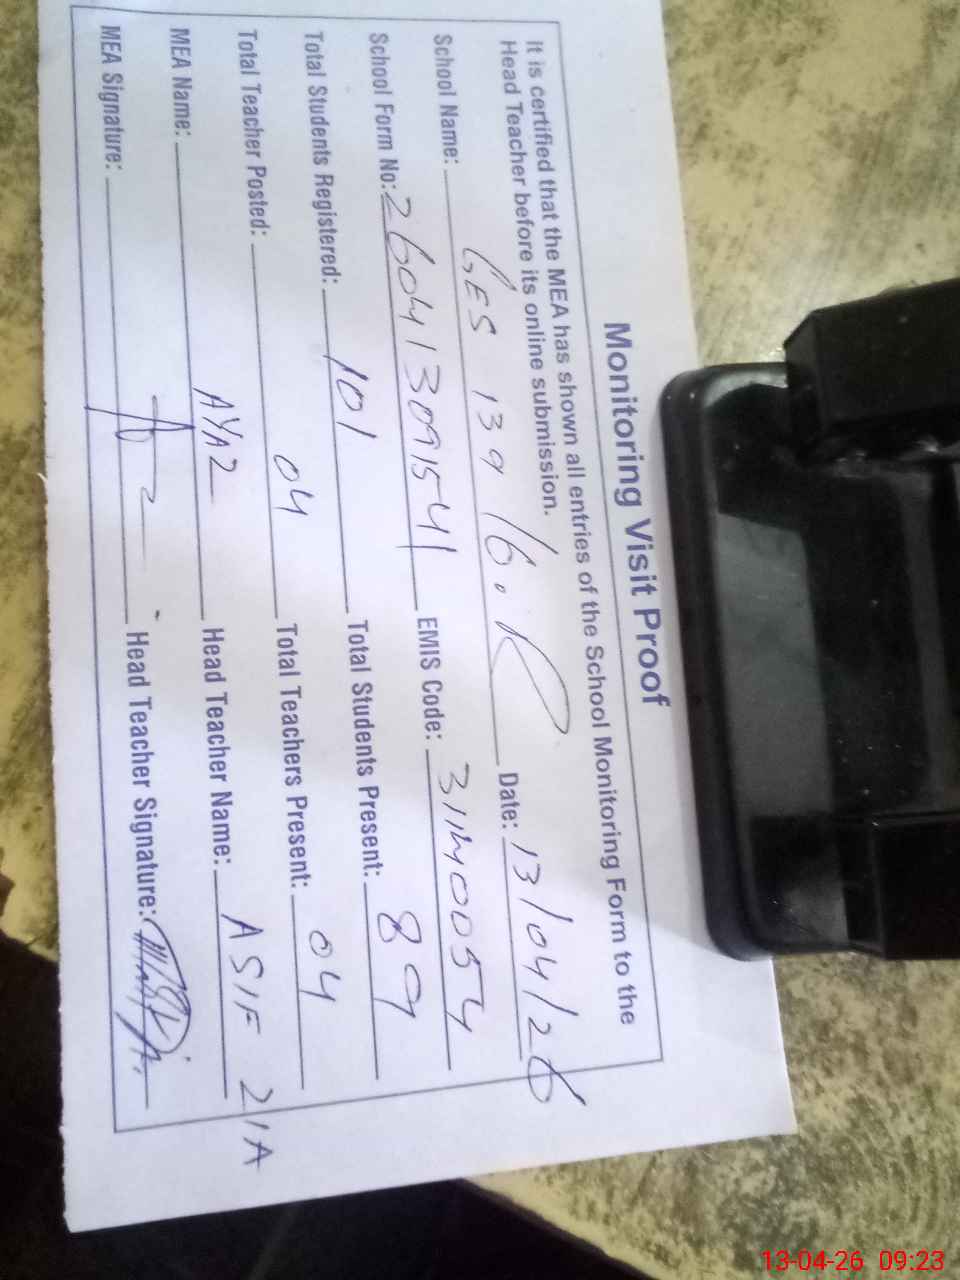 Monitoring Visit Proof
It is certified that the MEA has shown all entries of the School Monitoring Form to the
Head Teacher before its online submission.
School Name: GES 139/6.R Date: 13/04/26
School Form No: 260413091541 EMIS Code: 31140054
Total Students Registered: 101 Total Students Present: 89
Total Teacher Posted: 04 Total Teachers Present: 04
MEA Name: AYAZ Head Teacher Name: ASIF ZIA
MEA Signature: Head Teacher Signature:
13-04-26 09:23